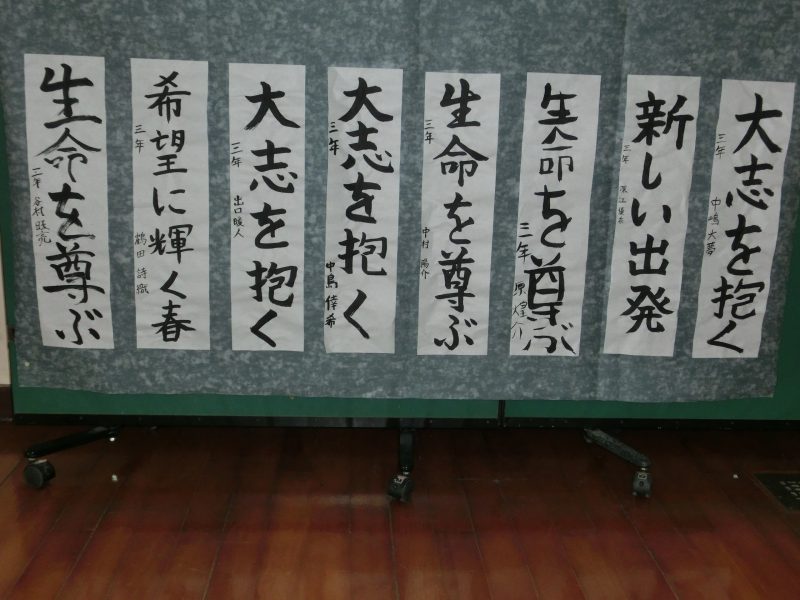 大志を抱く
三年 中嶋大夢
新しい出発
三年
生命を尊ぶ
三年 原煌介
生命を尊ぶ
三年 中村陽介
大志を抱く
三年 中島倖希
大志を抱く
三年 出口暖人
希望に輝く春
三年 鶴田詩織
生命を尊ぶ
三年 谷村